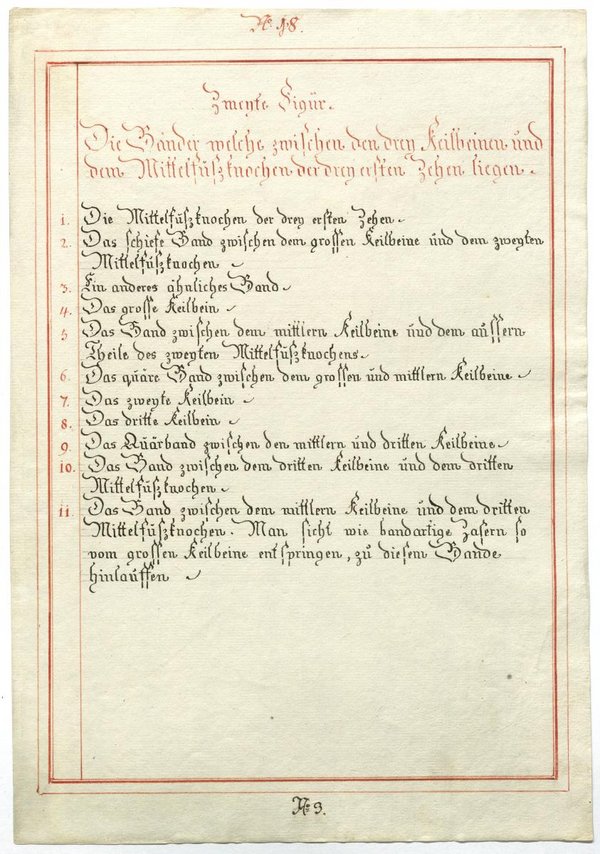 No 18.
Zweyte Figur.
Die Bänder welche zwischen den drey Keilbeinen und
dem Mittelfuszknochen der drey ersten Zehen liegen.
1. Die Mittelfuszknochen der drey ersten Zehen
2. Das schiefe Band zwischen dem grossen Keilbeine und dem zweyten
Mittelfuszknochen
3. Ein anderes ähnliches Band
4. Das grosse Keilbein
5 Das Band zwischen dem mittlern Keilbeine und dem aussern
Theile des zweyten Mittelfuszknochens
6. Das quäre Band zwischen dem grossen und mittlern Keilbeine
7. Das zweyte Keilbein
8. Das dritte Keilbein
9. Das Quärband zwischen den mittlern und dritten Keilbeine
10. Das Band zwischen dem dritten Keilbeine und dem dritten
Mittelfuszknochen
11. Das Band zwischen dem mittlern Keilbeine und dem dritten
Mittelfuszknochen. Man sicht wie bandartige Zasern so
vom grossen Keilbeine entspringen, zu diesem Bande
hinlauffen
No 9.